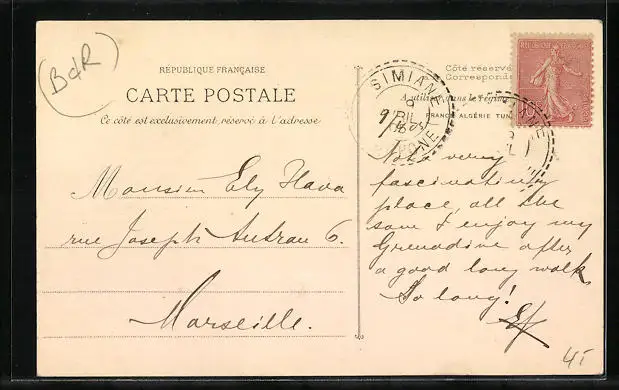 B d R
RÉPUBLIQUE FRANÇAISE
CARTE POSTALE
Ce côté est exclusivement réservé à l'adresse
Côté réservé
Correspond
A utiliser dans le régime
FRANCE ALGÉRIE TUN
SIMIANE
8
AVRIL
RHONE
10
Monsieur Ely Hava
rue Joseph Autran 6.
Marseille.
Not a very
fascinating
place, all the
same I enjoy my
Grenadine after
a good long walk
So long!
45